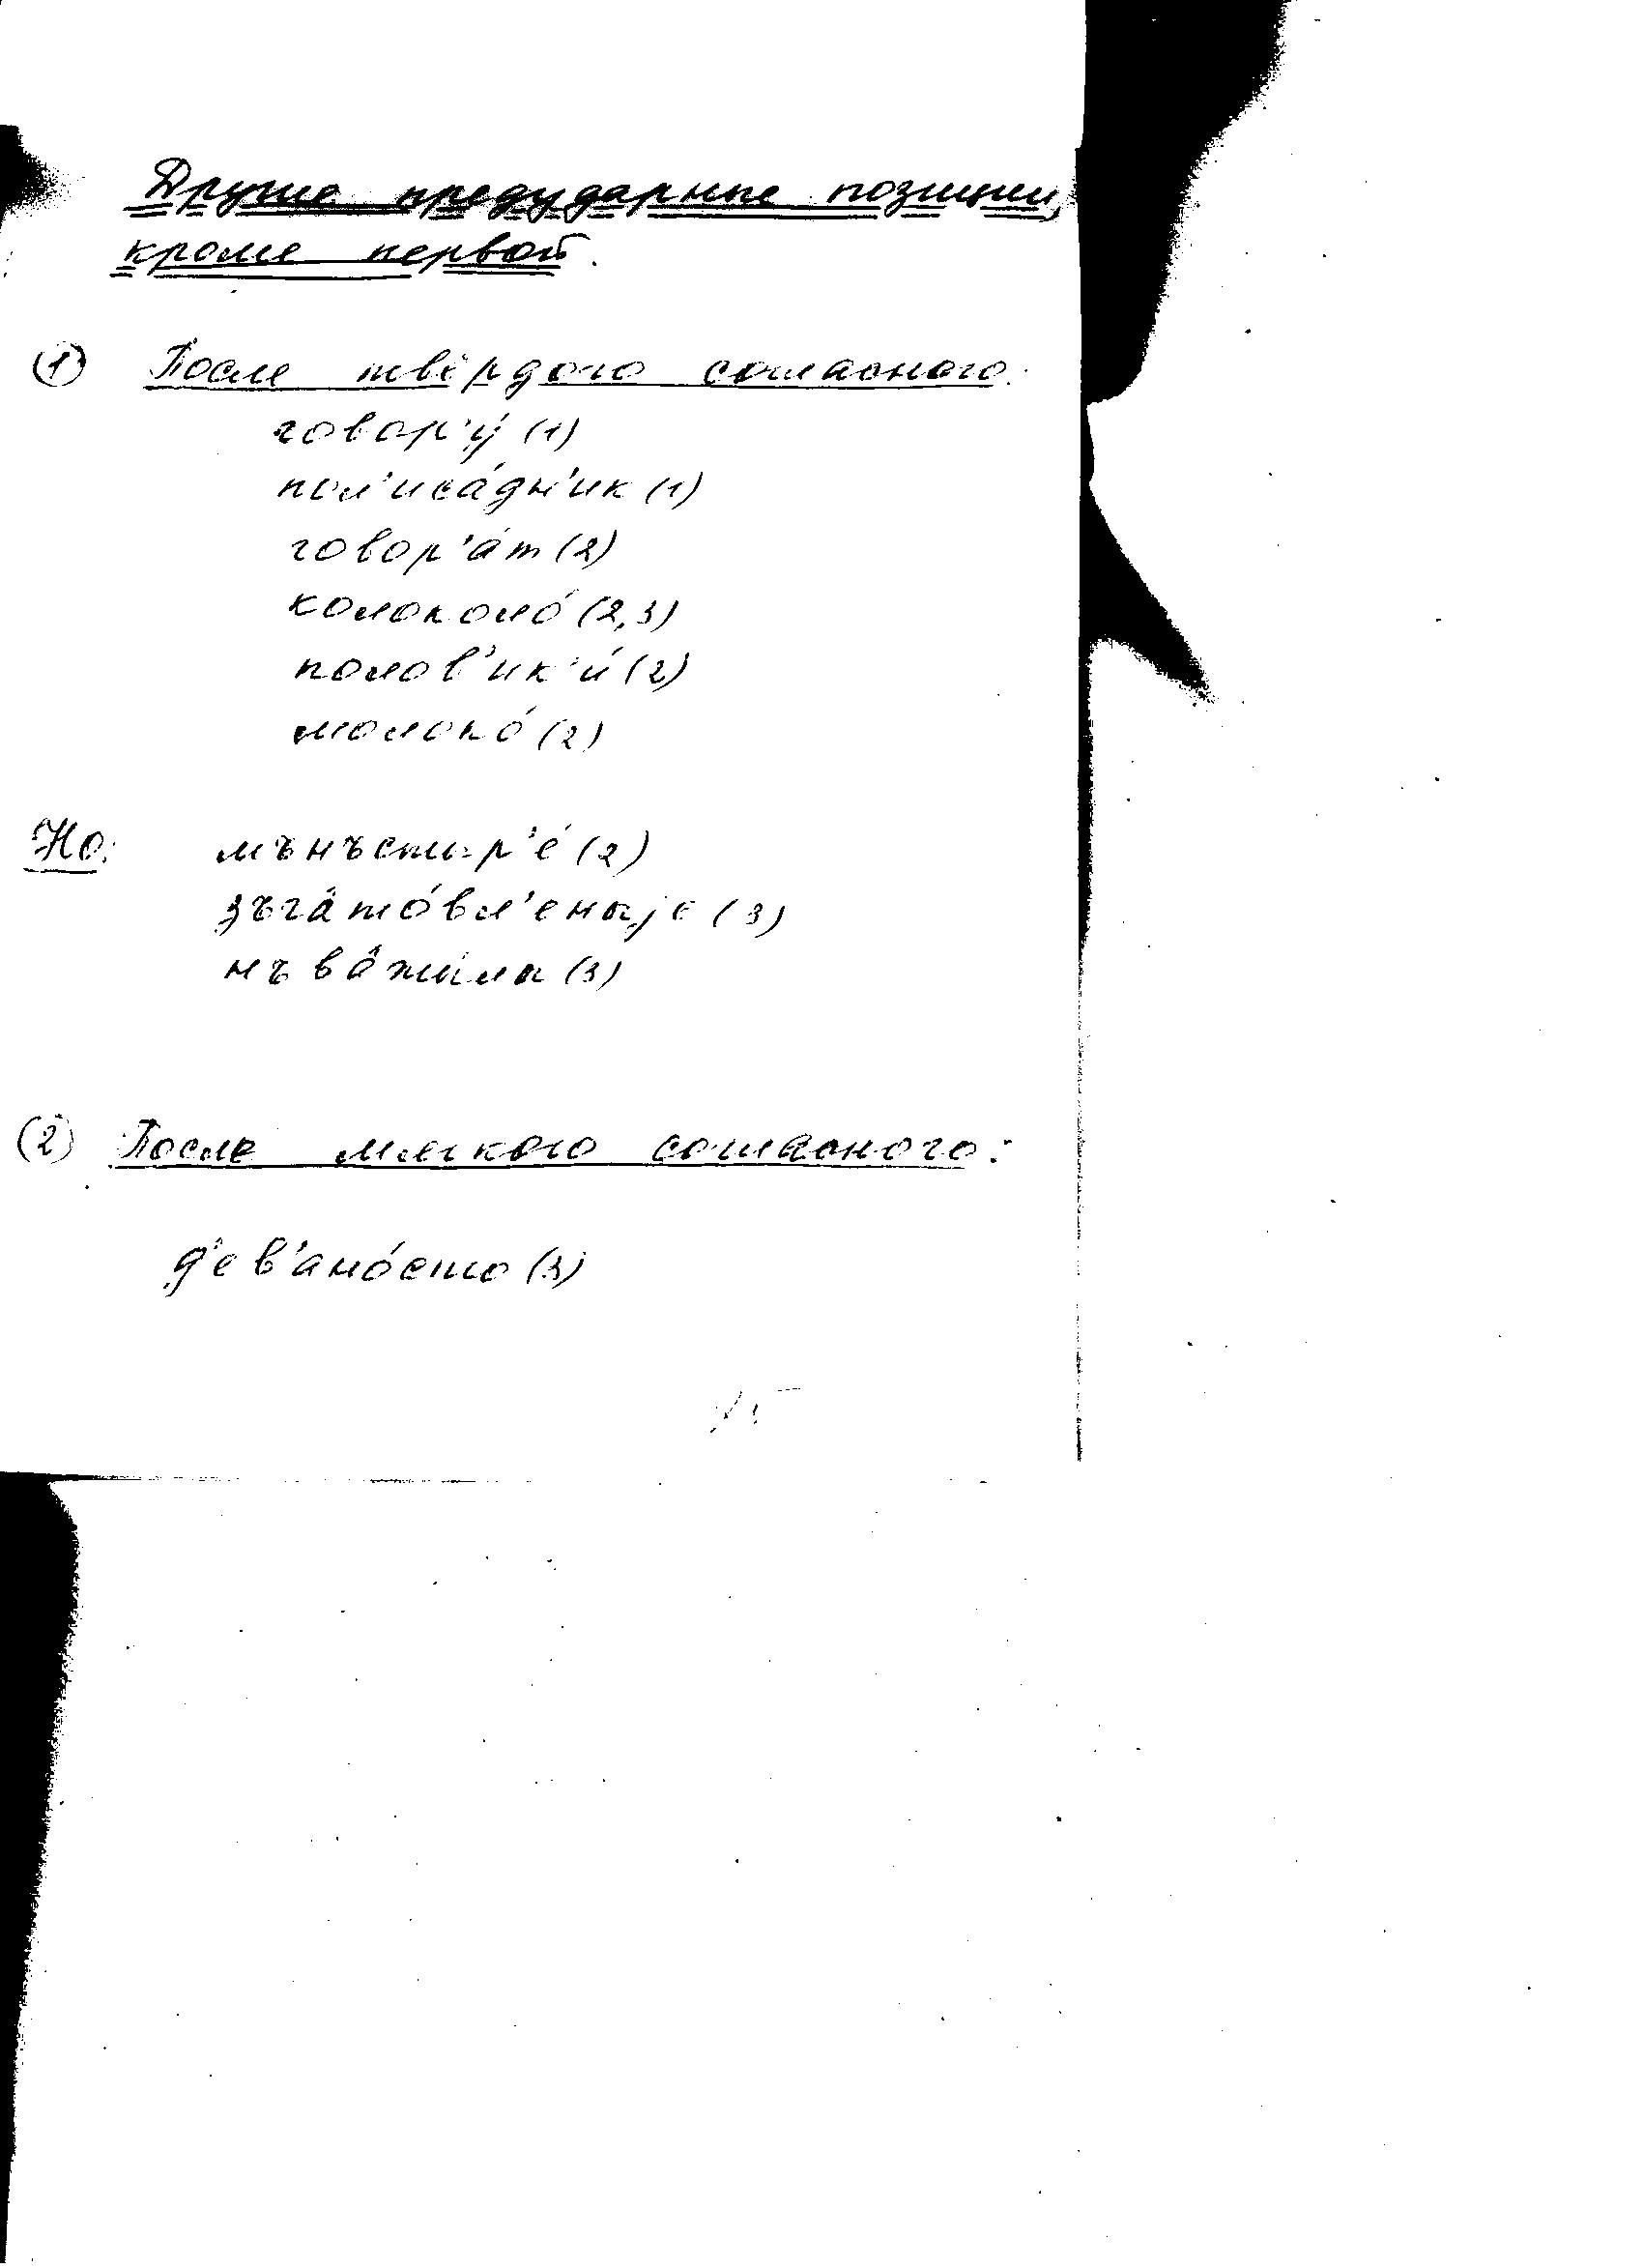 Другие предударные позиции,
кроме первой.
(1) После твёрдого согласного:
говор'у́ (1)
пол'иса́дн'ик (1)
говор'а́т (2)
колоколо́ (2,3)
полов'ик'и́ (2)
молоко́ (2)
Но: мънъстыр'е́ (2)
зъгâто́вл'еныjе (3)
нъвâжи́ла (3)
(2) После мягкого согласного:
д'ев'ано́сто (3)